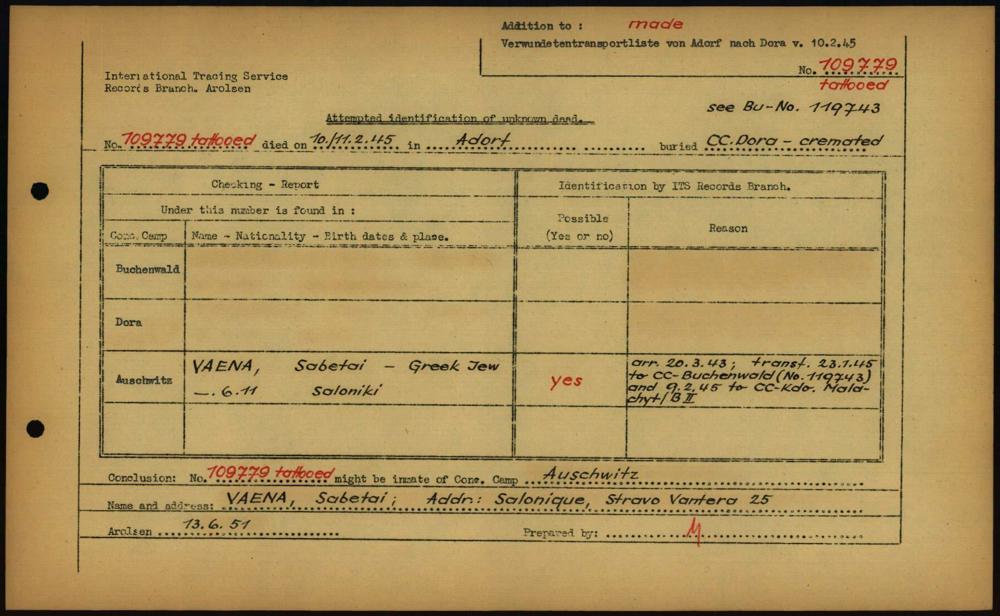 Addition to : made
Verwundetentransportliste von Adorf nach Dora v. 10.2.45
No. 109779
tattooed
International Tracing Service
Records Branch. Arolsen
see Bu-No. 119743
Attempted identification of unknown dead.
No. 109779 tattooed died on 10./11.2.45 in Adorf buried CC.Dora - cremated
Checking - Report
Identification by ITS Records Branch.
Under this number is found in :
Possible
(Yes or no)
Reason
Conc. Camp
Name - Nationality - Birth dates & place.
Buchenwald
Dora
Auschwitz
VAENA, Sabetai - Greek Jew
—.6.11 Saloniki
yes
arr. 20.3.43; transf. 23.1.45
to CC-Buchenwald (No. 119743)
and 9.2.45 to CC-Kdo. Mala-
chyt/B II
Conclusion: No. 109779 tattooed might be inmate of Conc. Camp Auschwitz
Name and address: VAENA, Sabetai; Addr.: Salonique, Stravo Vantera 25
Arolsen 13.6.51
Prepared by: